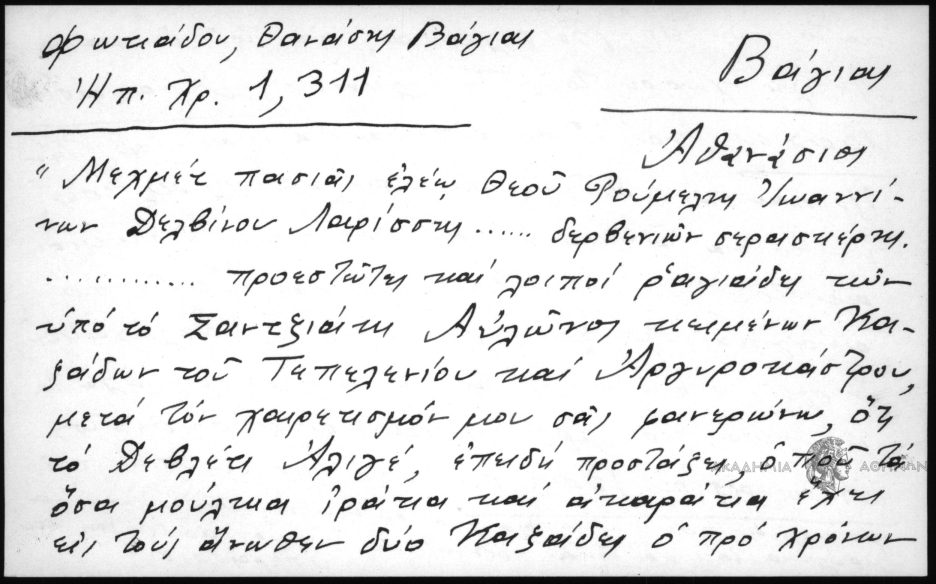 Φωτιάδου, Θανάσης Βάγιας
Ἠπ. Χρ. 1, 311
Βάγιας
Ἀθανάσιος
"Μεχμέτ πασιᾶς ἐλέῳ Θεοῦ Ρούμελης Ἰωαννί-
νων Δελβίνου Λαρίσσης ...... δερβενιῶν σερασκέρης.
............. προεστῶτες καί λοιποί ραγιάδες τῶν
ὑπό τό Σαντζιάκι Αὐλῶνος κειμένων Κα-
ζάδων τοῦ Τεπελενίου καί Ἀργυροκάστρου,
μετά τόν χαιρετισμόν μου σᾶς φανερώνω, ὅτι
τό Δεβλέτι Ἀλιγέ, ἐπειδή προστάζει, ὁποῦ τά
ὅσα μούλκια ἰράτια καί ἀκαράτια ἔχει
εἰς τούς ἄνωθεν δύο Καζάδες ὁ πρό χρόνων
ΑΚΑΔΗΜΙΑ ΑΘΗΝΩΝ